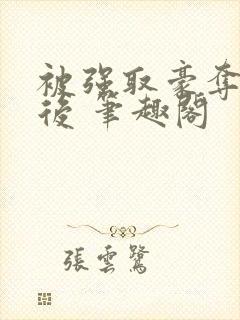 被強取豪奪
後 筆趣閣
張雲鷺